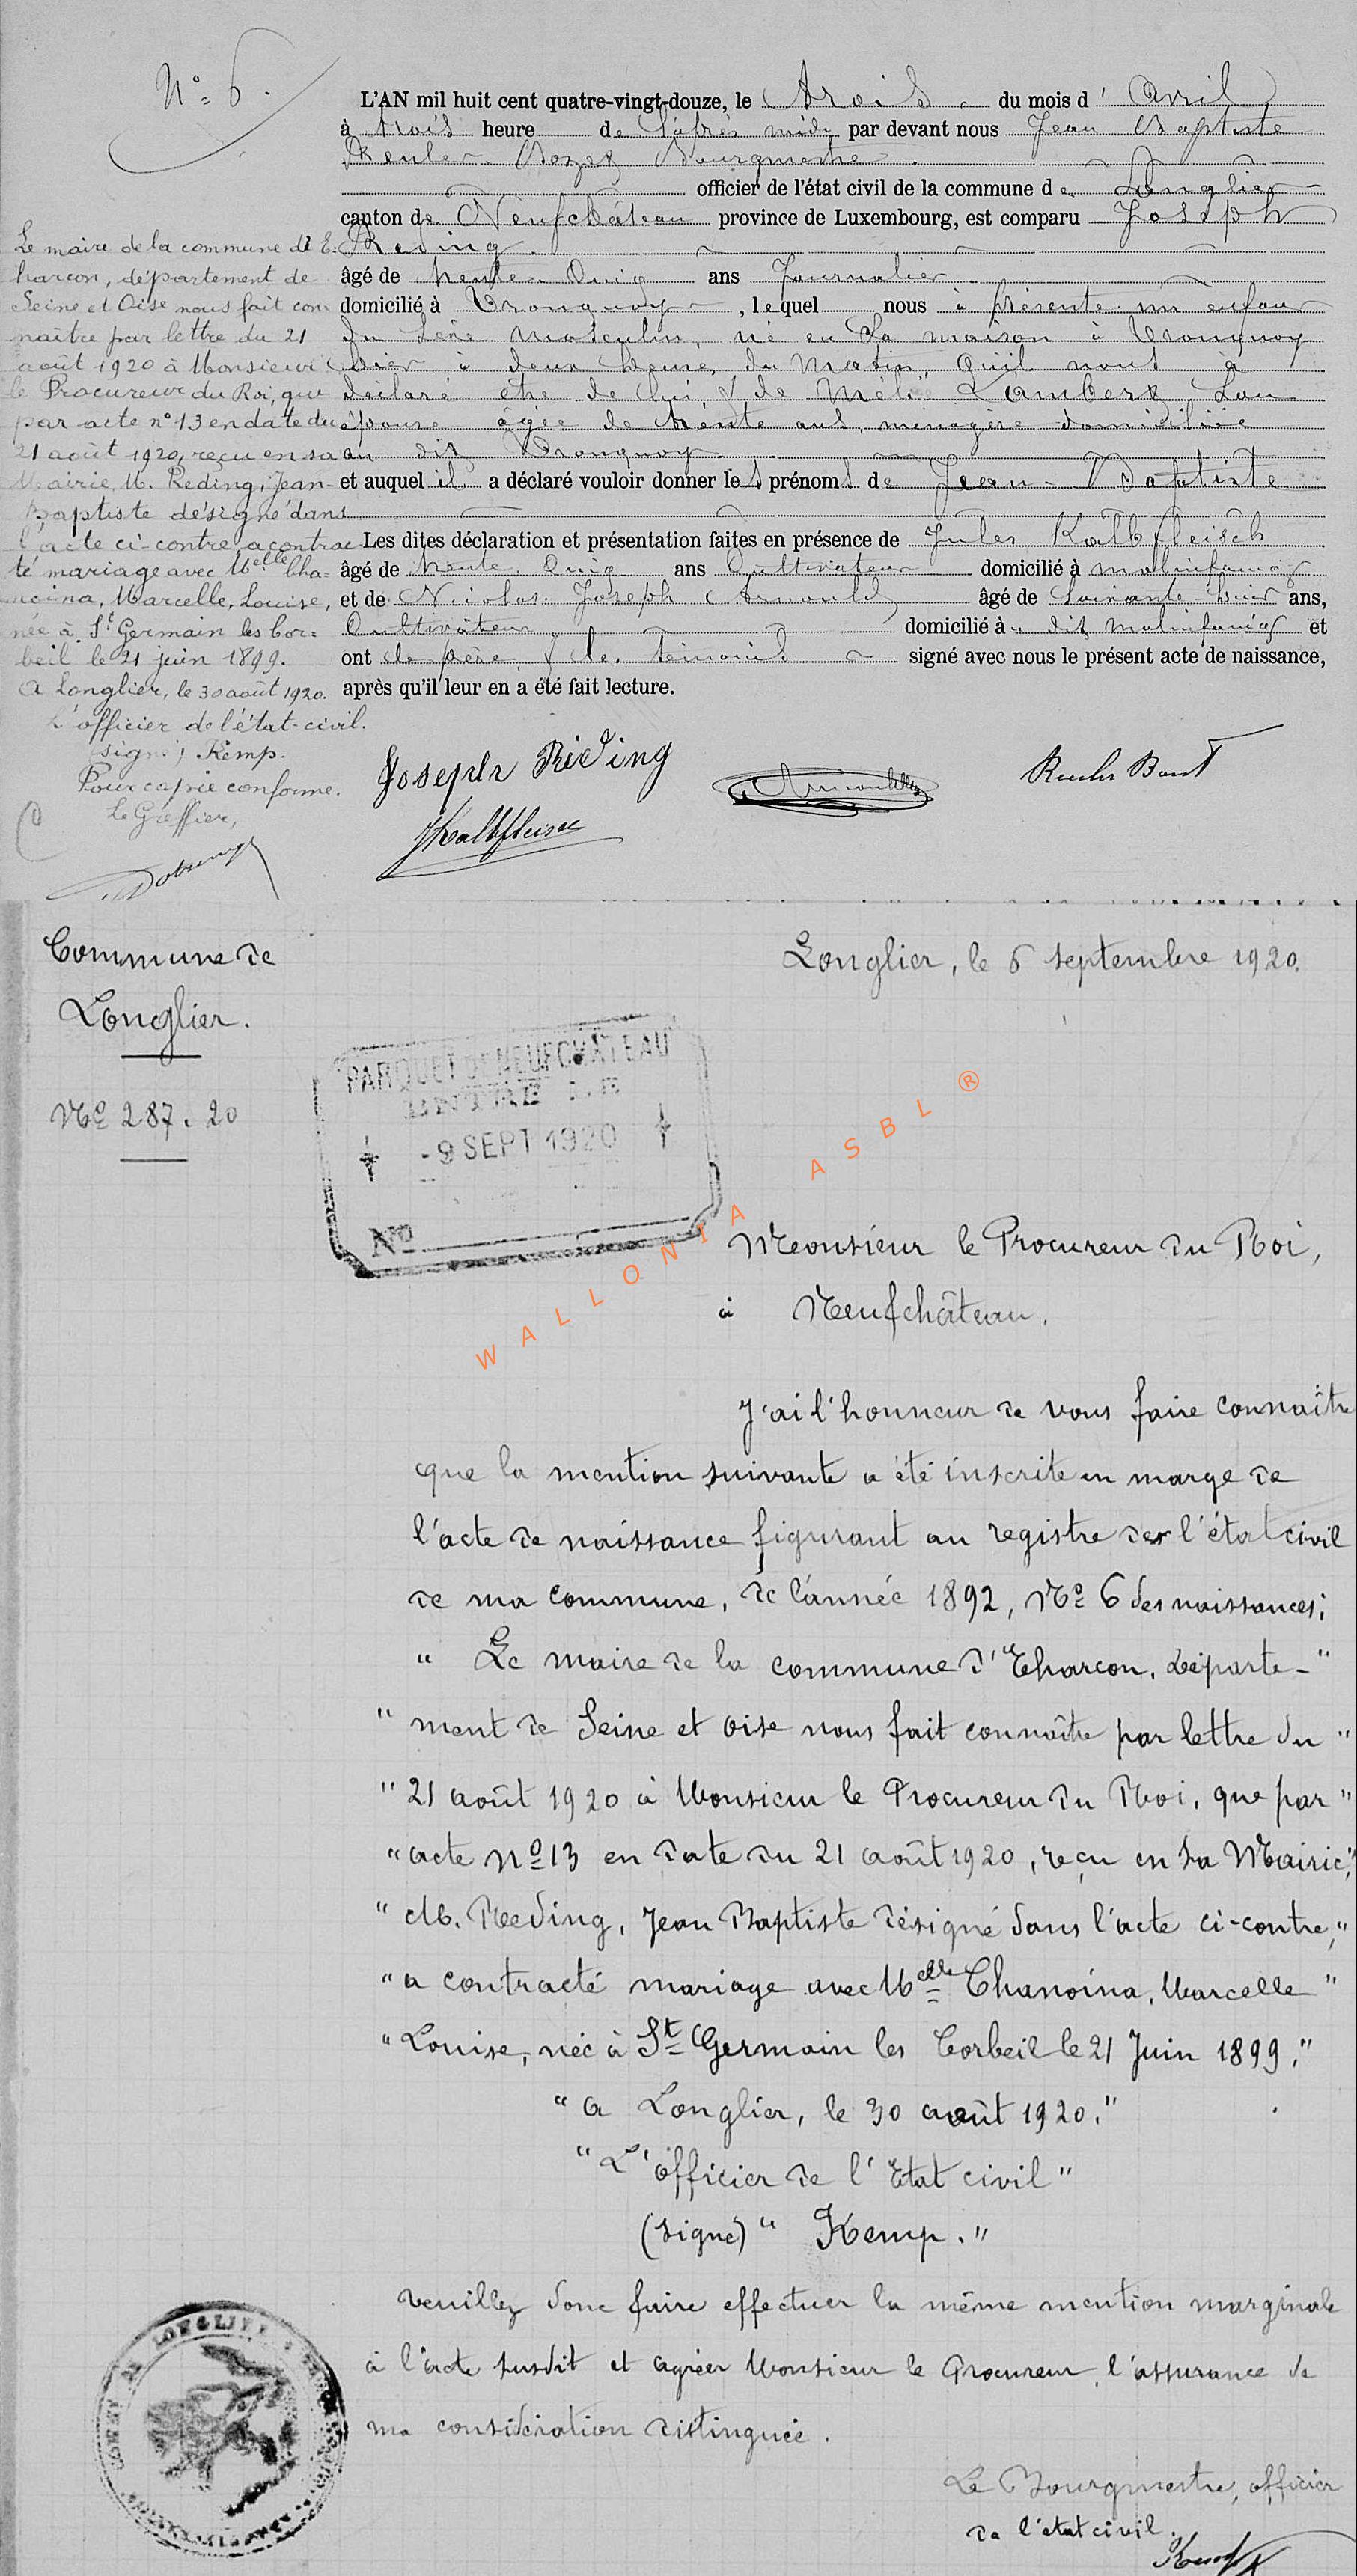 N° 6.
L'AN mil huit cent quatre-vingt-douze, le trois du mois d' Avril
à trois heure de l'après midi par devant nous Jean Baptiste
Bourgmestre
officier de l'état civil de la commune de Longlier
canton de Neufchâteau province de Luxembourg, est comparu Joseph
Reding
âgé de trente cinq ans Journalier
domicilié à Tronquoy, lequel nous à présenté un enfant
du sexe masculin, né en sa maison à Tronquoy
hier à deux heures du matin, qu'il nous à
déclaré être de lui, & de Lambert Son
épouse âgée de trente ans, ménagère domiciliée
au dit Tronquoy
et auquel il a déclaré vouloir donner les prénoms de Jean-Baptiste
Les dites déclaration et présentation faites en présence de Jules Kalbfleisch
âgé de trente cinq ans Cultivateur domicilié à Malinfaing
et de Nicolas Joseph Arnould âgé de soixante huit ans,
Cultivateur domicilié à dit Malinfaing et
ont le père & les témoins signé avec nous le présent acte de naissance,
après qu'il leur en a été fait lecture.
Joseph Rieding
Arnould
JKalbfleisch
Le maire de la commune d'E-
harcon, département de
Seine et Oise nous fait con-
naître par lettre du 21
août 1920 à Monsieur
le Procureur du Roi, que
par acte n° 13 en date du
21 août 1920, reçu en sa
Mairie, M. Reding, Jean-
Baptiste désigné dans
l'acte ci-contre, a contrac-
té mariage avec Melle Cha-
noina, Marcelle, Louise,
née à St Germain les Cor-
beil le 21 juin 1899.
A Longlier, le 30 août 1920.
L'officier de l'état-civil.
(signé) Kemp.
Pour copie conforme.
Le Greffier,
Commune de
Longlier.
N° 287.20
Longlier, le 6 septembre 1920.
PARQUET DE NEUFCHATEAU
ENTRÉ LE
- 9 SEPT 1920
N°
WALLONIA ASBL ®
Monsieur le Procureur du Roi,
à Neufchâteau.
J'ai l'honneur de vous faire connaître
que la mention suivante a été inscrite en marge de
l'acte de naissance figurant au registre de l'état civil
de ma commune, de l'année 1892, N° 6 des naissances:
" Le maire de la commune d'Eharcon, Départe- "
" ment de Seine et Oise nous fait connaître par lettre du "
" 21 août 1920 à Monsieur le Procureur du Roi, que par "
" acte N° 13 en date du 21 août 1920, reçu en sa Mairie, "
" M. Reding, Jean Baptiste désigné dans l'acte ci-contre, "
" a contracté mariage avec Melle Chanoina, Marcelle "
" Louise, née à St Germain les Corbeil le 21 Juin 1899. "
" A Longlier, le 30 août 1920. "
" L'officier de l'Etat civil "
(signé) " Kemp. "
Veuillez donc faire effectuer la même mention marginale
à l'acte susdit et agréer Monsieur le Procureur, l'assurance de
ma considération distinguée.
Le Bourgmestre, officier
de l'état civil.